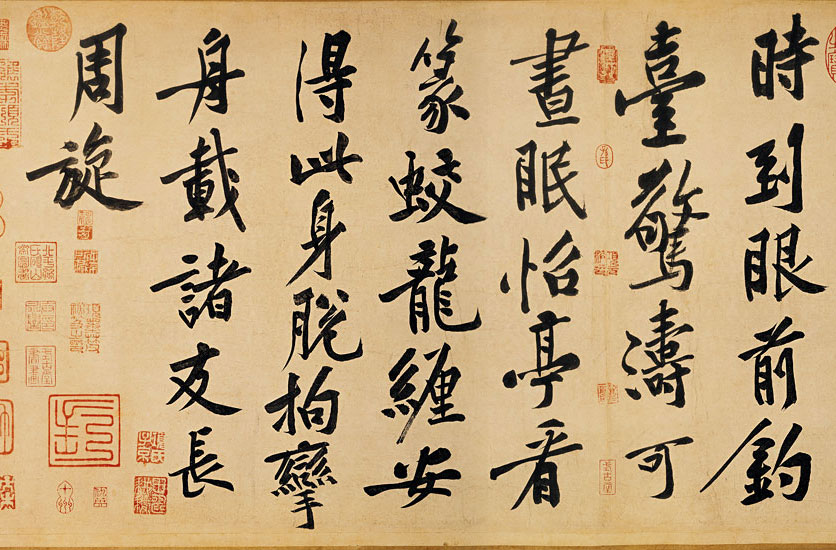 時到眼前釣
臺驚濤可
晝眠怡亭看
篆蛟龍纏安
得此身脫拘攣
舟載諸友長
周旋